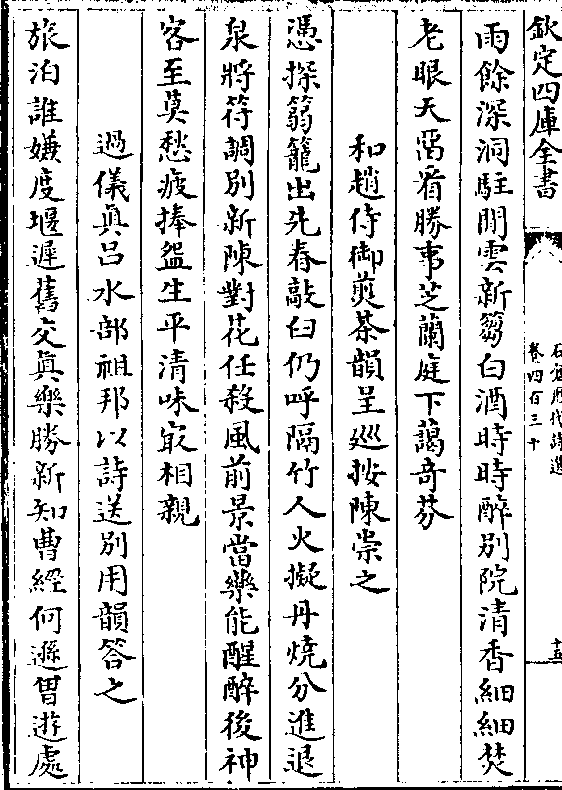 欽定四庫全書
石倉歴代詩選
卷四百三十
十五
雨餘深洞駐閒雲新篘白酒時時醉别院清香細細焚
老眼天畱看勝事芝蘭庭下藹奇芬
和趙侍御煎茶韻呈廵按陳崇之
憑探篛籠出先春敲臼仍呼隔竹人火擬丹燒分進退
泉將符調别新陳對花任殺風前景當藥能醒醉後神
客至莫愁疲捧盌生平清味㝡相親
過儀真吕水部祖邦以詩送别用韻答之
旅泊誰嫌度堰遲舊交真樂勝新知曹經何遜曽遊處